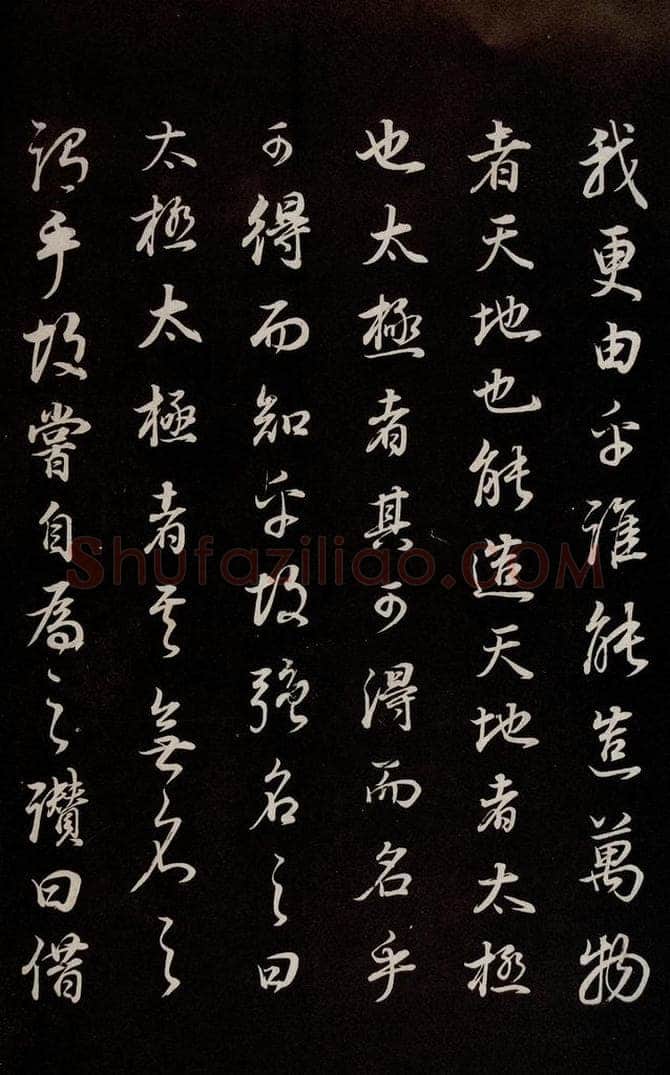 我更由乎誰能造萬物
者天地也能造天地者太極
也太極者其可得而名乎
可得而知乎故强名之曰
太極太極者其無名之
謂乎故嘗自為之讚曰借
Shufaziliao.COM